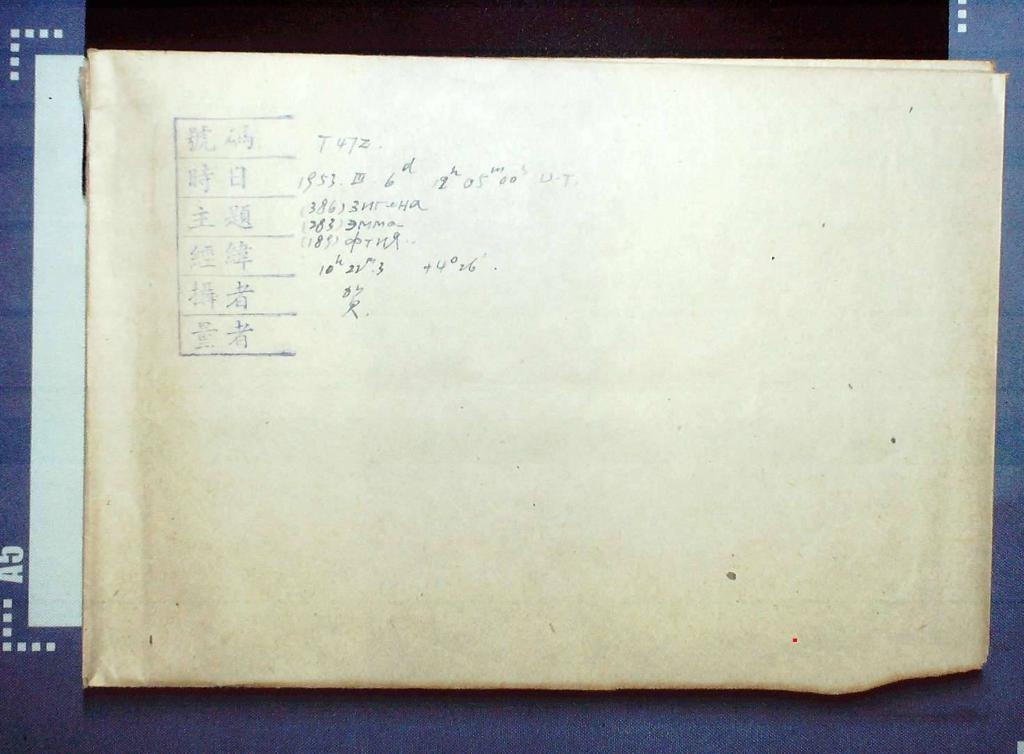 號碼 T472.
時日 1953. III. 6ᵈ 12ʰ 05ᵐ 00ˢ U.T.
主題 (386) Зигена
(283) Эмма
(189) Фтия.
經緯 10ʰ 22ᵐ.3 +4° 26′.
攝者
量者
A5